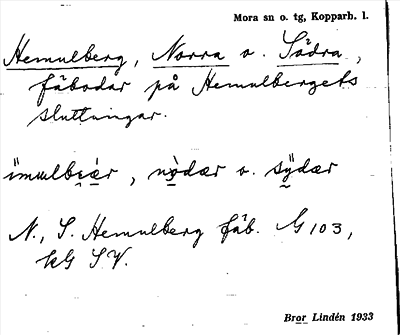 Mora sn o. tg, Kopparb. l.
Hemulberg, Norra o. Södra,
fäbodar på Hemulbergets
sluttningar.
o. 
N., S. Hemulberg fäb. G 103,
kG SV.
Bror Lindén 1933